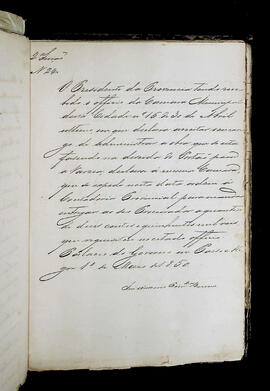 2ª Secção
Nº 24.
O Presidente da Provincia tendo rece-
bido o officio da Camara Municipal
desta Cidade nº 15 de 30 de Abril
ultimo, em que declara acceitar o encar-
go de administrar a obra que se está
fazendo na
para
a Varzea, declara á mesma Camara
que se expede nesta data ordem á
Contadoria Provincial para mandar
entregar ao seu Procurador a quantia
de dous contos e quinhentos mil reis
que requisita no citado officio.
Palacio do Governo em Porto Ale-
gre 1º de Maio de 1850.